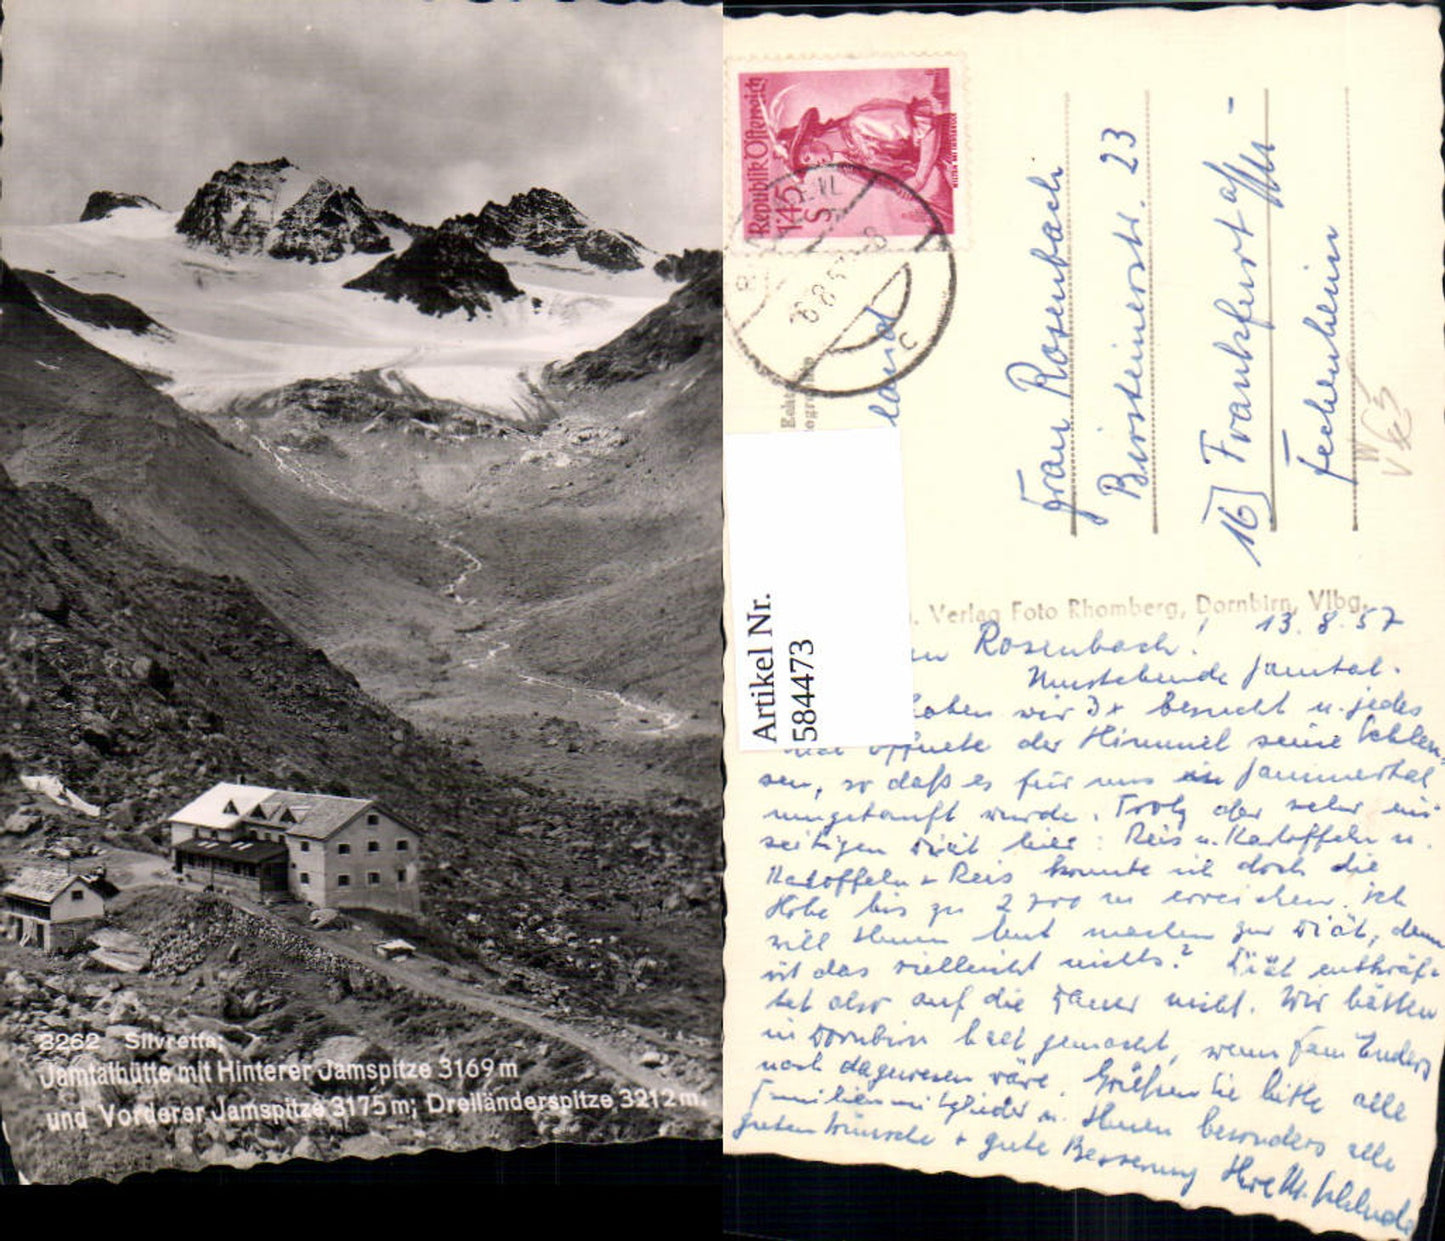 3262 Silvretta;
Jamtalhütte mit Hinterer Jamspitze 3169 m
und Vorderer Jamspitze 3175 m; Dreiländerspitze 3212 m.
Republik Österreich
1.45 S
C
land
Artikel Nr.
584473
Frau Rosenbach
Birsteinerstr. 23
16 Frankfurt a/M -
Fechenheim
Verlag Foto Rhomberg, Dornbirn, Vlbg.
Rosenbach! 13.8.57
Umstehende Jamtal-
haben wir 3x besucht u. jedes
mal öffnete der Himmel seine Schleu-
sen, so daß es für uns in Jammertal
umgetauft wurde. Trotz der sehr ein-
seitigen Diät hier: Reis u. Kartoffeln u.
Kartoffeln + Reis konnte ich doch die
Höhe bis zu 2700 m erreichen. Ich
will Ihnen Mut machen zur Diät, denn
ist das vielleicht nichts? Diät entkräf-
tet also auf die Dauer nicht. Wir hätten
in Dornbirn halt gemacht, wenn Fam. Enders
noch dagewesen wäre. Grüßen Sie bitte alle
Familienmitglieder u. Ihnen besonders alle
guten Wünsche + gute Besserung Ihre M.